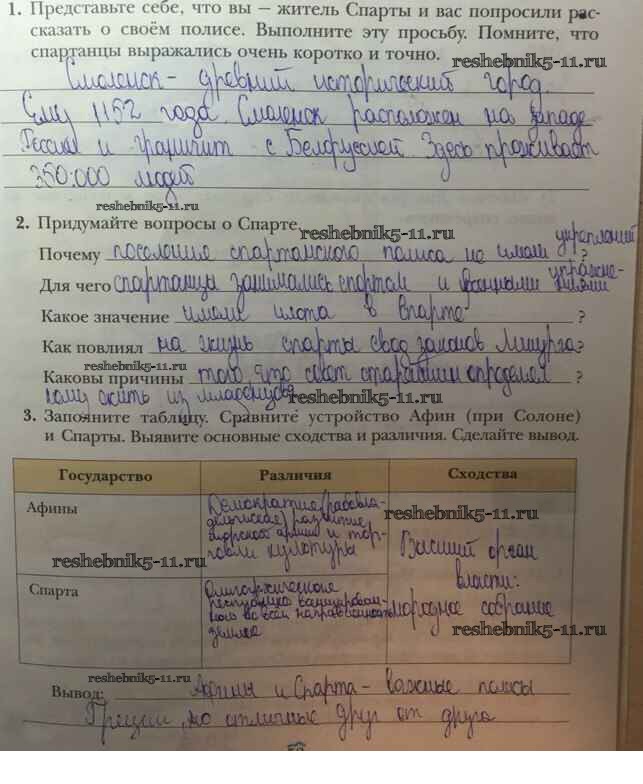 1. Представьте себе, что вы — житель Спарты и вас попросили рас-
сказать о своём полисе. Выполните эту просьбу. Помните, что
спартанцы выражались очень коротко и точно.
reshebnik5-11.ru
Смоленск - древний исторический город.
Ему 1152 года. Смоленск расположен на западе
России и граничит с Белоруссией. Здесь проживает
350.000 людей
reshebnik5-11.ru
2. Придумайте вопросы о Спарте.
reshebnik5-11.ru
Почему поселения спартанского полиса не имели укреплений ?
Для чего спартанцы занимались спортом и военными упражне-
ниями
Какое значение имели илоты в Спарте ?
Как повлиял на жизнь спарты свод законов Ликурга?
reshebnik5-11.ru
Каковы причины того, что совет старейшин определял ?
кому жить из младенцев
reshebnik5-11.ru
3. Заполните таблицу. Сравните устройство Афин (при Солоне)
и Спарты. Выявите основные сходства и различия. Сделайте вывод.
Государство Различия Сходства
Афины
Демократия (рабовла-
дельческая) развитие
морской армии и тор-
говли культуры
reshebnik5-11.ru
reshebnik5-11.ru
Высший орган
власти:
народное собрание
Спарта
Олигархическая
республика
во всём
reshebnik5-11.ru
reshebnik5-11.ru
Вывод: Афины и Спарта - важные полисы
Греции, но отличные друг от друга